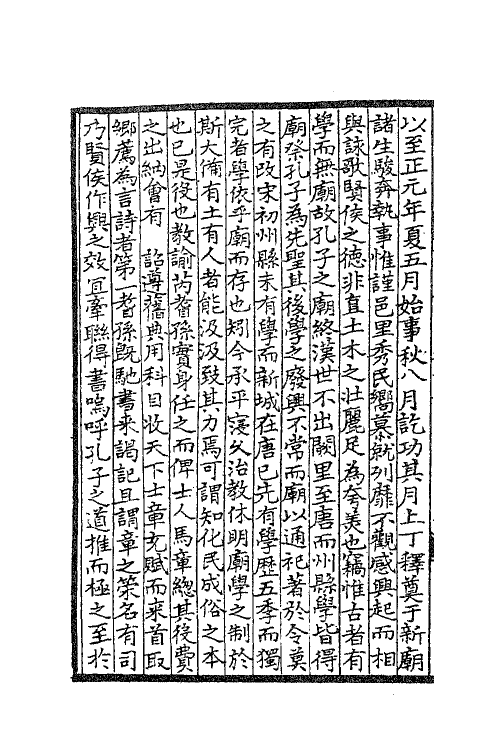 以至正元年夏五月始事秋八月訖功其月上丁釋奠于新廟
諸生駿奔執事惟謹邑里秀民嚮慕就列靡不觀感興起而相
與詠歌賢侯之德非直土木之壯麗足為夸美也竊惟古者有
學而無廟故孔子之廟終漢世不出闕里至唐而州縣學皆得
廟祭孔子為先聖其後學之廢興不常而廟以通祀著於令莫
之有改宋初州縣未有學而新城在唐已先有學歷五季而獨
完者學依乎廟而存也矧今承平寖久治教休明廟學之制於
斯大備有土有人者能汲汲致其力焉可謂知化民成俗之本
也已是役也教諭芮耆孫實身任之而俾士人馬章總其役費
之出納會有 詔遵舊典用科目收天下士章尤賦而來首取
鄉薦為言詩者第一耆孫既馳書來謁記且謂章之策名有司
乃賢侯作興之效宜牽聯得書嗚呼孔子之道推而極之至於